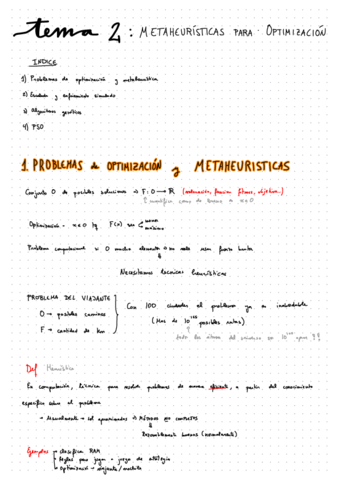 tema 2: METAHEURÍSTICAS PARA OPTIMIZACIÓN
INDICE
1) Problemas de optimización y metaheurística
2) Escalada y enfriamiento simulado
3) Algoritmos genéticos
4) PSO
1. PROBLEMAS de OPTIMIZACIÓN y METAHEURISTICAS
Conjunto O de posibles soluciones → F: O → R (valoración, función fitness, objetivo..)
↑ cuantifica como de bueno es x∈O
Optimización - x∈O tq F(x) sea mínimo
máximo
Problema computacional si O muchos elementos → no vale usar fuerza bruta
Necesitamos técnicas heurísticas
PROBLEMA DEL VIAJANTE
O → posibles caminos
F → cantidad de km
Con 100 ciudades el problema ya es inabordable
(Más de 10 posibles rutas)
todos los átomos del universo son 10
Def Heurística
En computación, técnica para resolver problemas de manera eficiente, a partir del conocimiento
específico sobre el problema
→ Normalmente → sol aproximadas → Métodos no completos
→ Razonablemente buenas (normalmente)
Ejemplos → clasificar RAM
→ Reglas para jugar a juego de estrategia
→ Optimización → viajante / mochila